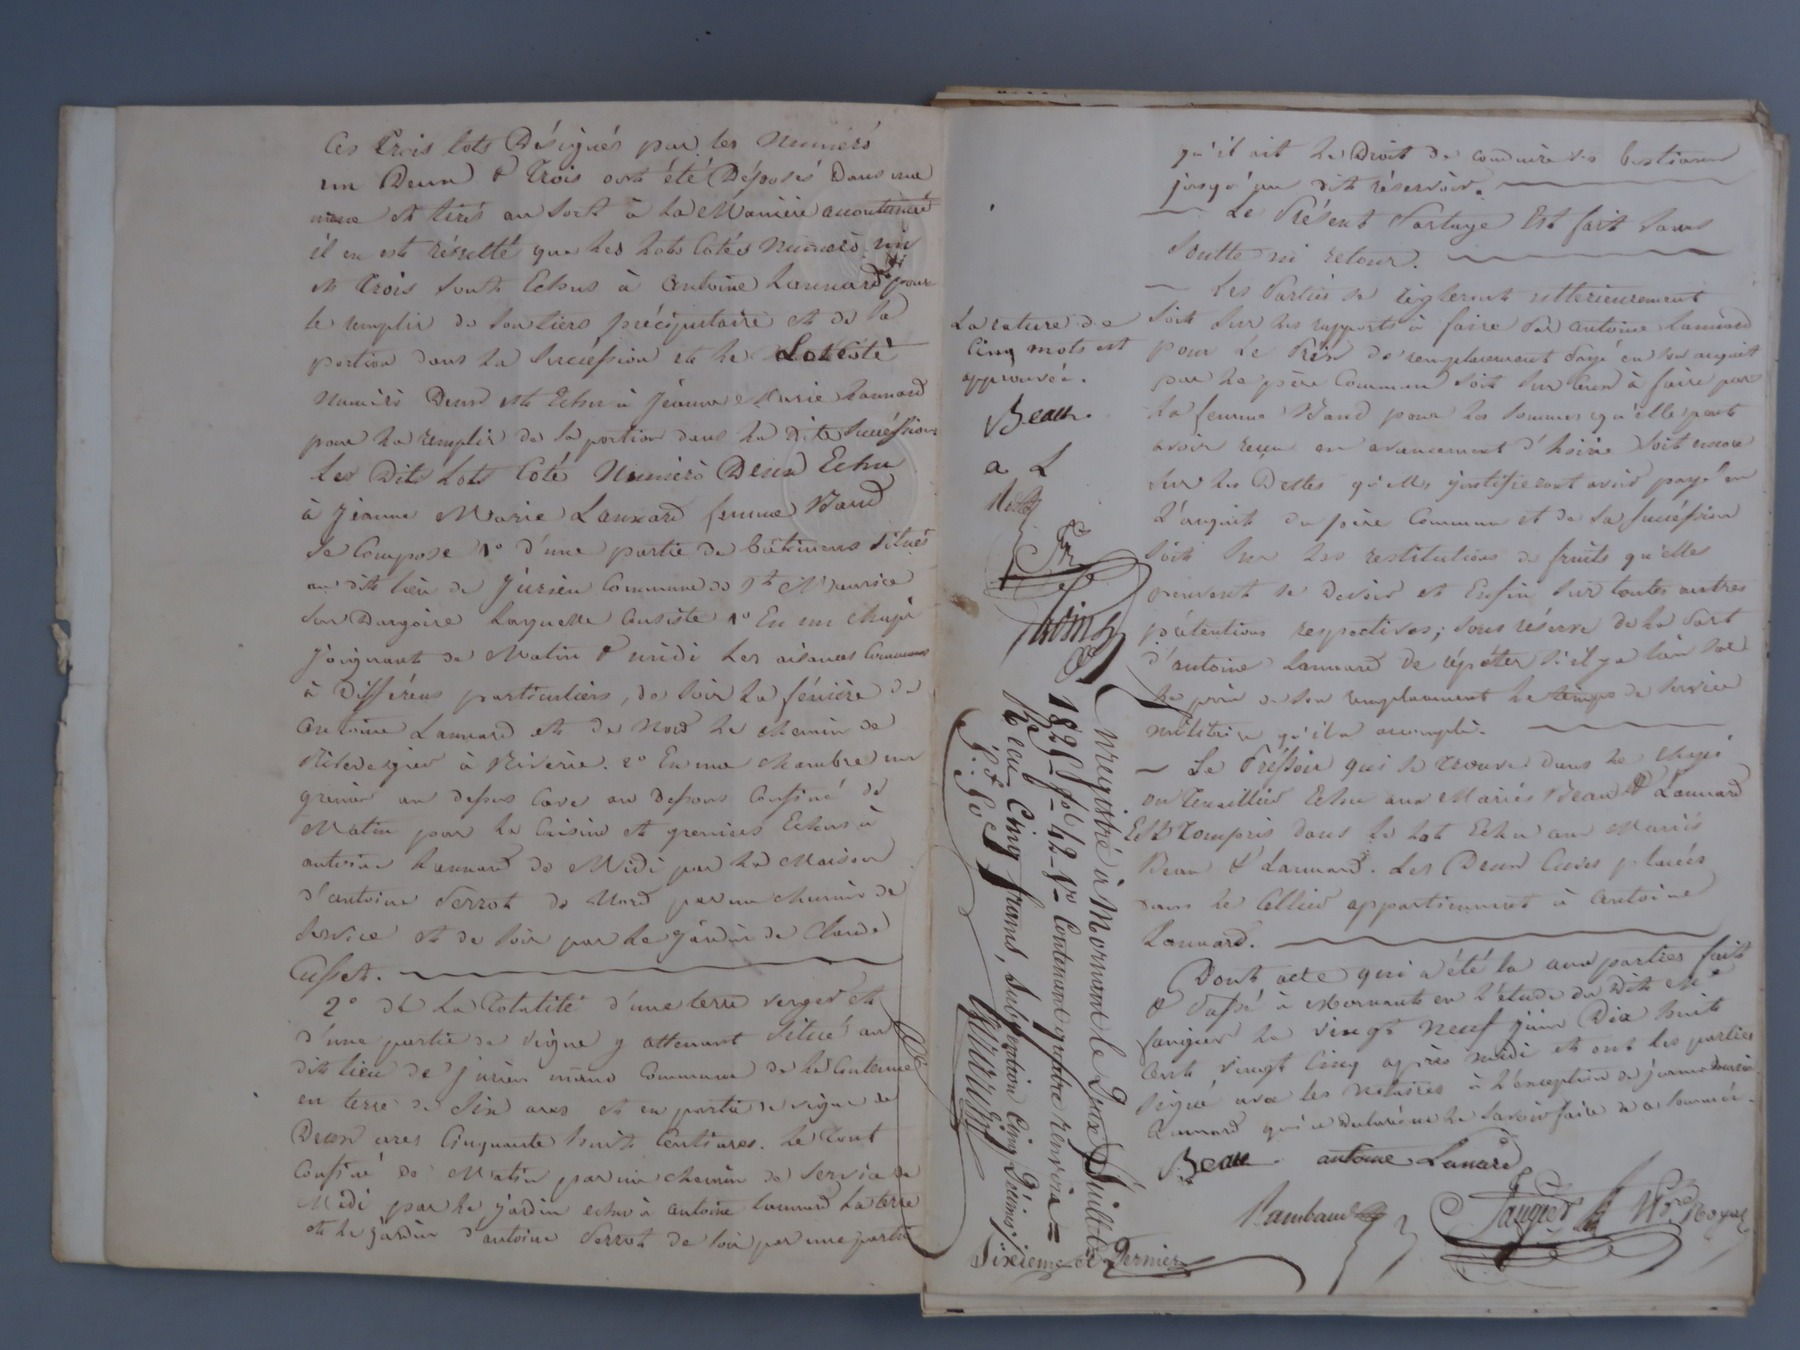 Ces trois lots Désignés par les Numéros
un Deux & Trois ont été Déposés Dans une
urne et tirés au Sort à la Manière accoutumée
il en est résulté que les lots Cotés Numéros un
et trois sont Echus à Antoine Lannard pour
le remplir de son tiers préciputaire et de sa
portion dans la Succession et le Lot Coté
Numéro Deux est Echu à Jeanne Marie Lannard
pour la remplir de sa portion dans la dite Succession
Les Dits Lots Coté Numéro Deux Echu
à Jeanne Marie Lannard femme
Se Compose 1° d'une partie de bâtimens Situés
au dit lieu de Jurieu Commune de St Maurice
Sur Dargoire Laquelle Consiste 1° En un Chapi
joignant de Matin & midi les aisances Communes
à Différens particuliers, de Soir la fénière de
Antoine Lannard et de Nord le chemin de
à Riverie. 2° En une chambre un
grenier au dessus Cave au Dessous Confiné de
Matin par la Cuisine et greniers Echus à
antoine Lannard de Midi par la Maison
d'antoine Serrot de Nord par un chemin de
Service et de Soir par le jardin de Claude
Cusset.
2° De La Totalité d'une terre verger et
d'une partie de vigne y attenant Situé au
dit lieu de Jurieu même Commune de la Contenue
en terre de Six ares et en partie de vigne de
Deux ares Cinquante huit Centiares. Le tout
Confiné de Matin par un chemin de Service de
Midi par le jardin echu à antoine Lannard la terre
et le jardin d'antoine Serrot de Soir par une partie
La rature de
Cinq mots est
approuvée.
Beau.
a L
Enregistré à Mornant le Deux Juillet
1825 fo 42 Vo Contenant quatre renvois =
Reçu Cinq francs, Subvention Cinquante Décimes
Sixieme et Dernier
qu'il ait le Droit de conduire ses bestiaux
jusqu'au dit réservoir.
Le Présent Partage Est fait Sans
Soulte ni retour.
Les Parties se règleront ultérieurement
Soit Sur les rapports à faire Par antoine Lannard
pour le Prix de remplacement Payé en son acquit
par le père Commun Soit Sur Ceux à faire par
la femme pour les Sommes qu'elle peut
avoir reçu en avancement d'hoirie Soit encore
Sur les Dettes qu'elles justifieront avoir payé en
l'acquit du père Commun et de sa Succession
Soit Sur les restitutions de fruits qu'elles
peuvent se Devoir et Enfin Sur toutes autres
prétentions respectives; Sous réserve de la Part
d'antoine Lannard de répéter S'il y a lieu Sur
le prix de son remplacement le temps de Service
militaire qu'il a accompli.
Le Préssoir qui se trouve dans le Chapi
ou Tenaillier Echu aux Mariés Beau & Lannard
Est Compris dans le Lot Echu aux Mariés
Beau & Lannard. Les Deux Cuves placées
dans le Cellier appartiennent à Antoine
Lannard.
Dont acte qui a été lu aux parties fait
& Passé à Mornant en l'étude du Dit Me
Faugier le vingt Neuf juin Dix huit
Cent vingt Cinq après midi et ont les parties
Signé avec les Notaires à l'exception de Jeanne Marie
Lannard qui a Declaré ne le Savoir faire de ce Sommée.
Beau antoine Lanard
Rambaud Faugier Nre Royal